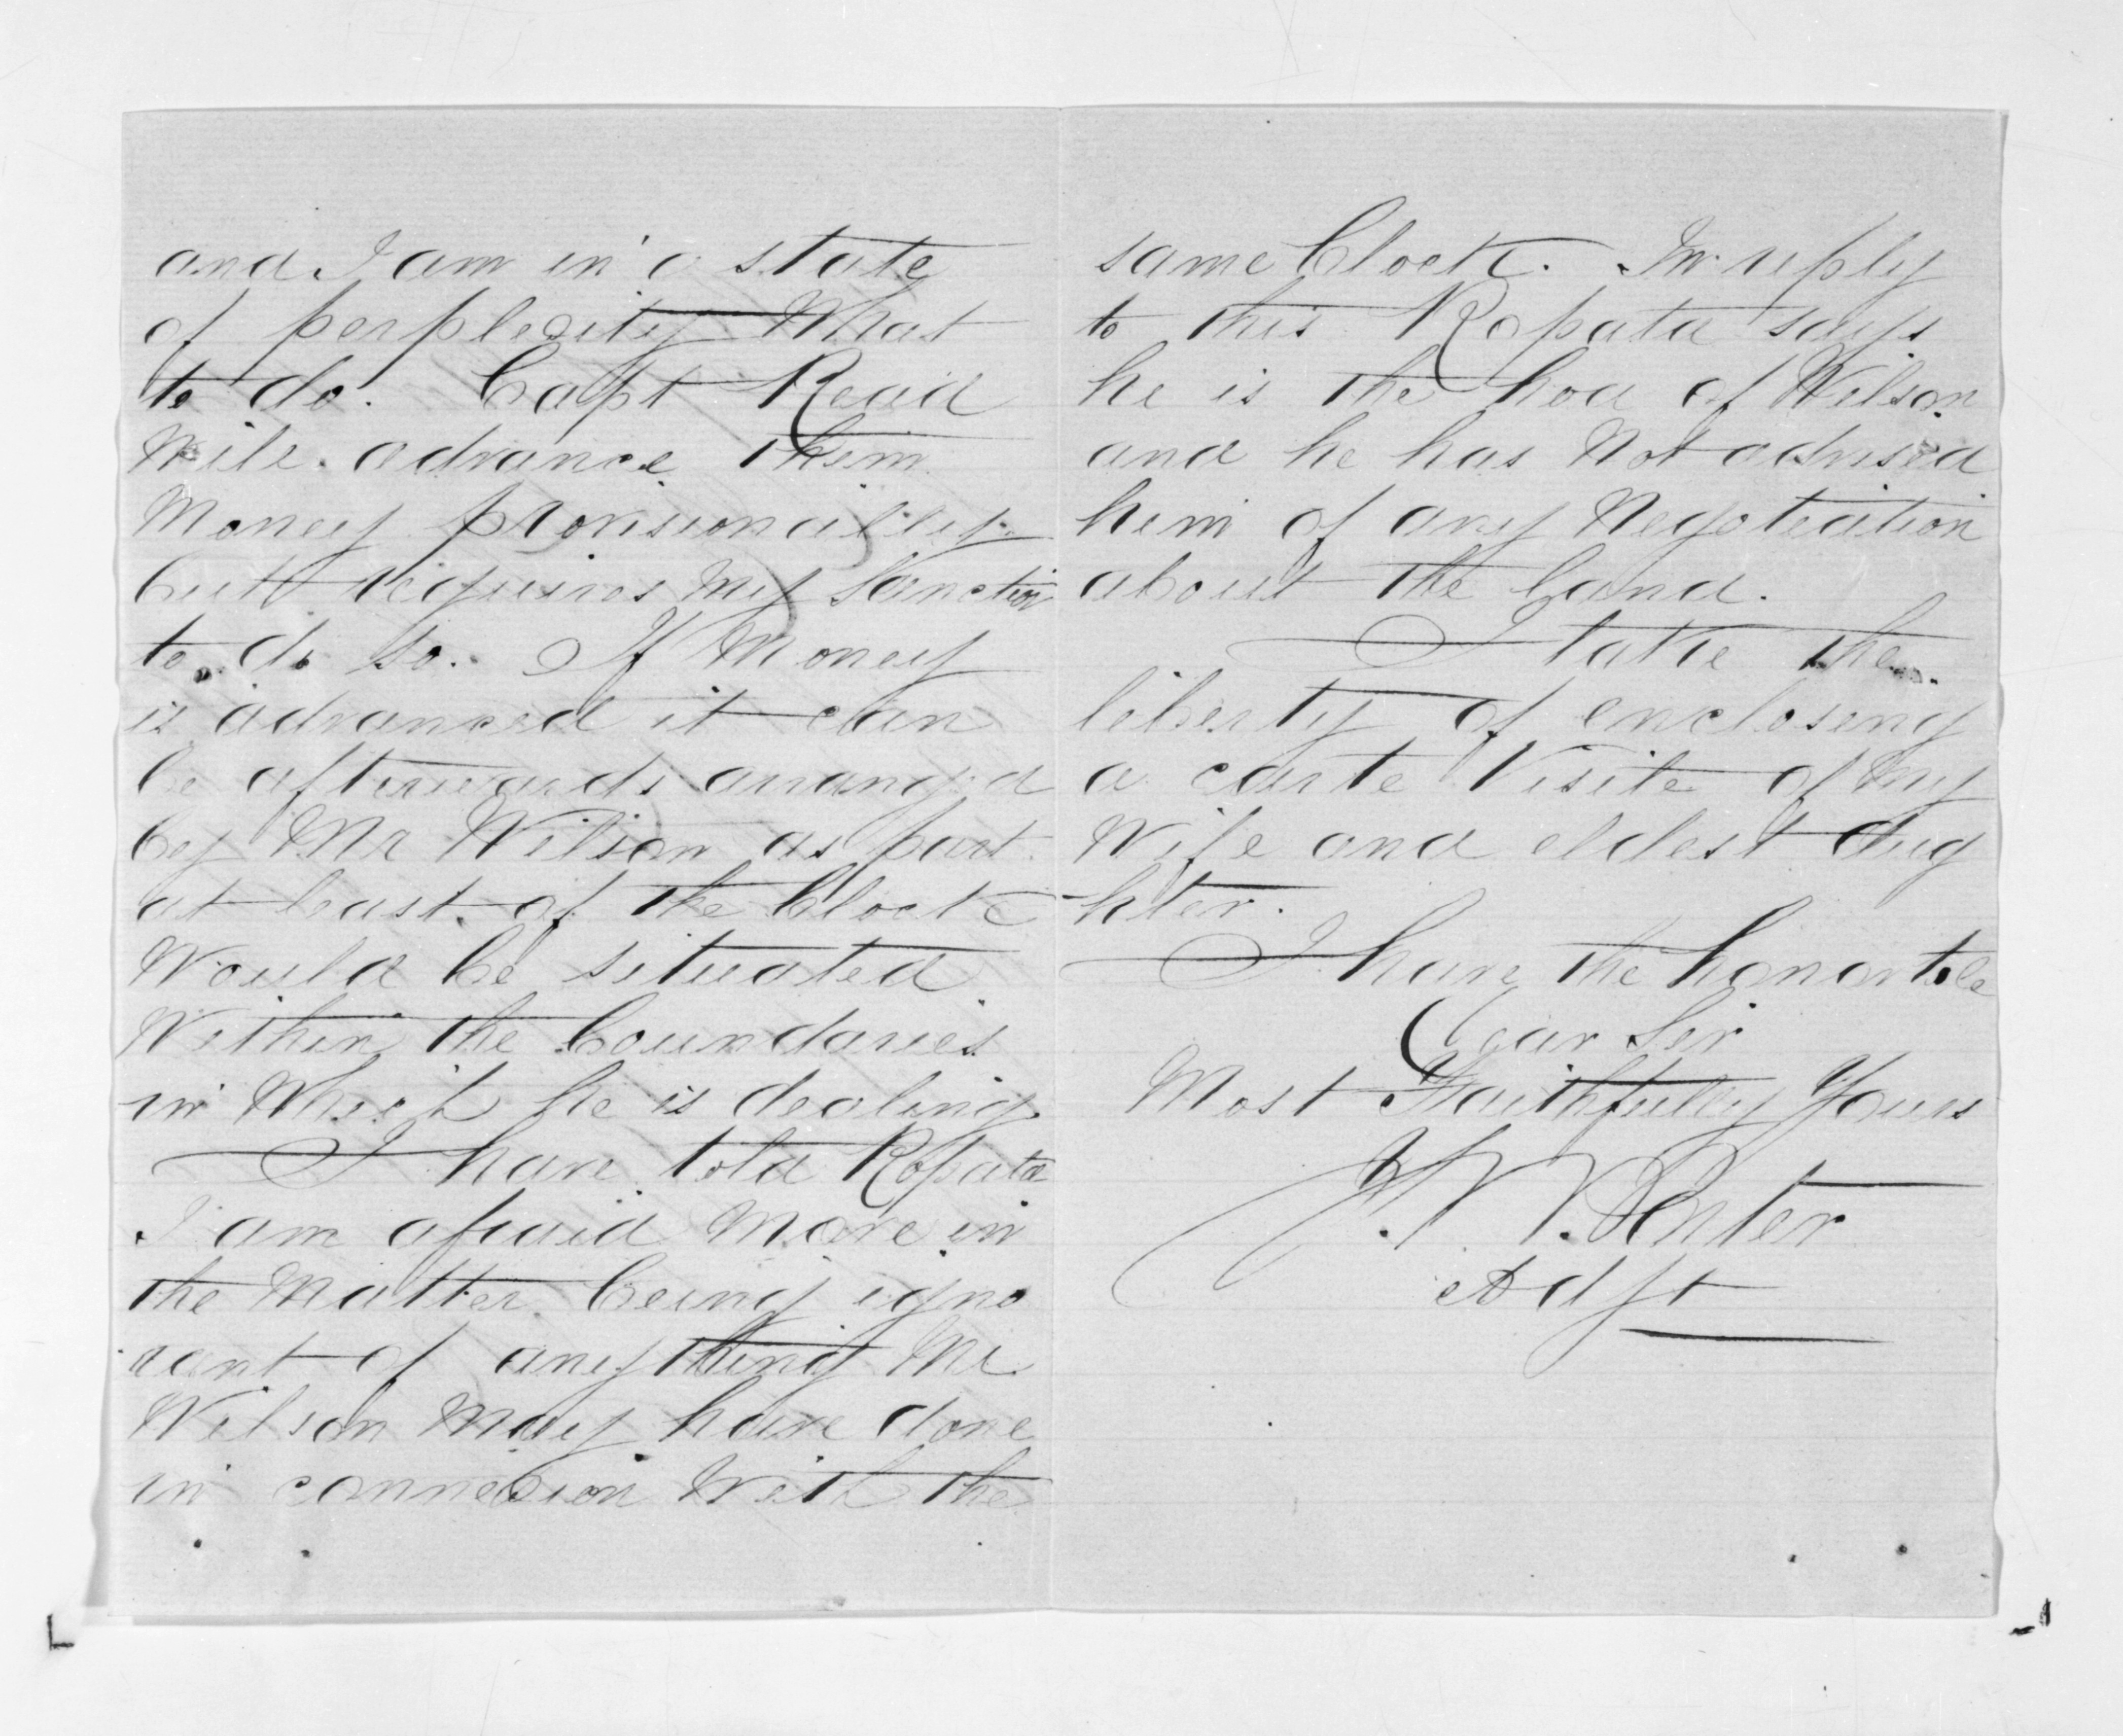 and I am in a state
of perplexity What
to do. Capt Read
Will advance them
Money provisionally
but requires my Sanction
to do so. If Money
is advanced it can
be afterwards arranged
by Mr Wilson as part
at least of the block
Would be situated
Within the boundaries
in Which he is dealing
I have told Ropata
I am afraid More in
the Matter being igno
rant of anything Mr
Wilson May have done
in connexion With the
same block. In reply
to this Ropata says
he is the hoa of Wilson
and he has Not advised
him of any Negotiation
about the land.
I take the
liberty of enclosing
a carte Visite of My
Wife and eldest daug
hter.
I have the honor to be
Dear Sir
Most Faithfully Yours
Porter
Adjt